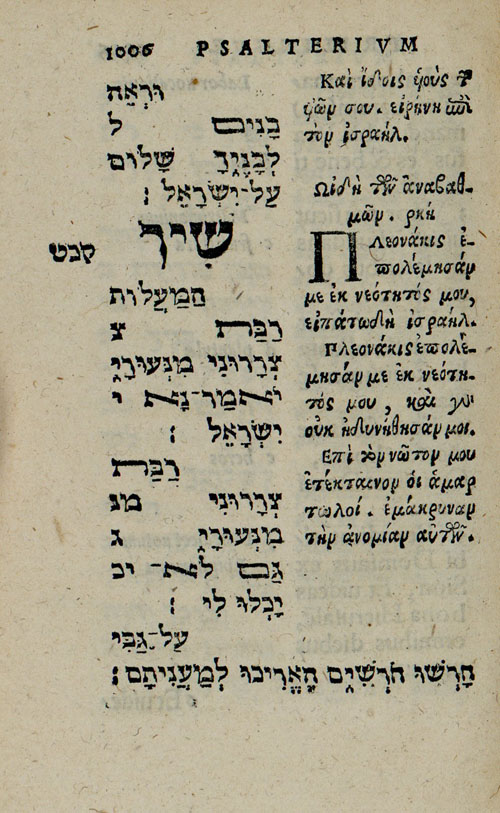 1006 PSALTERIVM
וּרְאֵה
בָנִים ל
לְבָנֶיךָ שָׁלוֹם
עַל־יִשְׂרָאֵל׃
קכט שִׁיר
הַמַּעֲלוֹת
רַבַּת צ
צְרָרוּנִי מִנְּעוּרָי
יֹאמַר־נָא י
יִשְׂרָאֵל׃
רַבַּת
צְרָרוּנִי מנ
מִנְּעוּרָי ג
גַּם לֹא־ יכ
יָכְלוּ לִי׃
עַל־גַּבִּי
חָרְשׁוּ חֹרְשִׁים הֶאֱרִיכוּ לְמַעֲנִיתָם׃
Καὶ ἴδοις ὑοὺς τ
ὑῶν σου. εἰρήνη ἐπὶ
τὸν ἰσραήλ.
Ωιδὴ τῶν ἀναβαθ-
μῶν. ρκή
Πλεονάκις ἐ-
πολέμησάν
με ἐκ νεότητός μου,
εἰπάτω δὴ ἰσραήλ.
Πλεονάκις ἐπολέ-
μησάν με ἐκ νεότη-
τός μου, καὶ γὰρ
οὐκ ἠδυνήθησάν μοι.
Επὶ τὸν νῶτον μου
ἐτέκταινον οἱ ἁμαρ
τωλοί. ἐμάκρυναν
τὴν ἀνομίαν αὐτῶν.